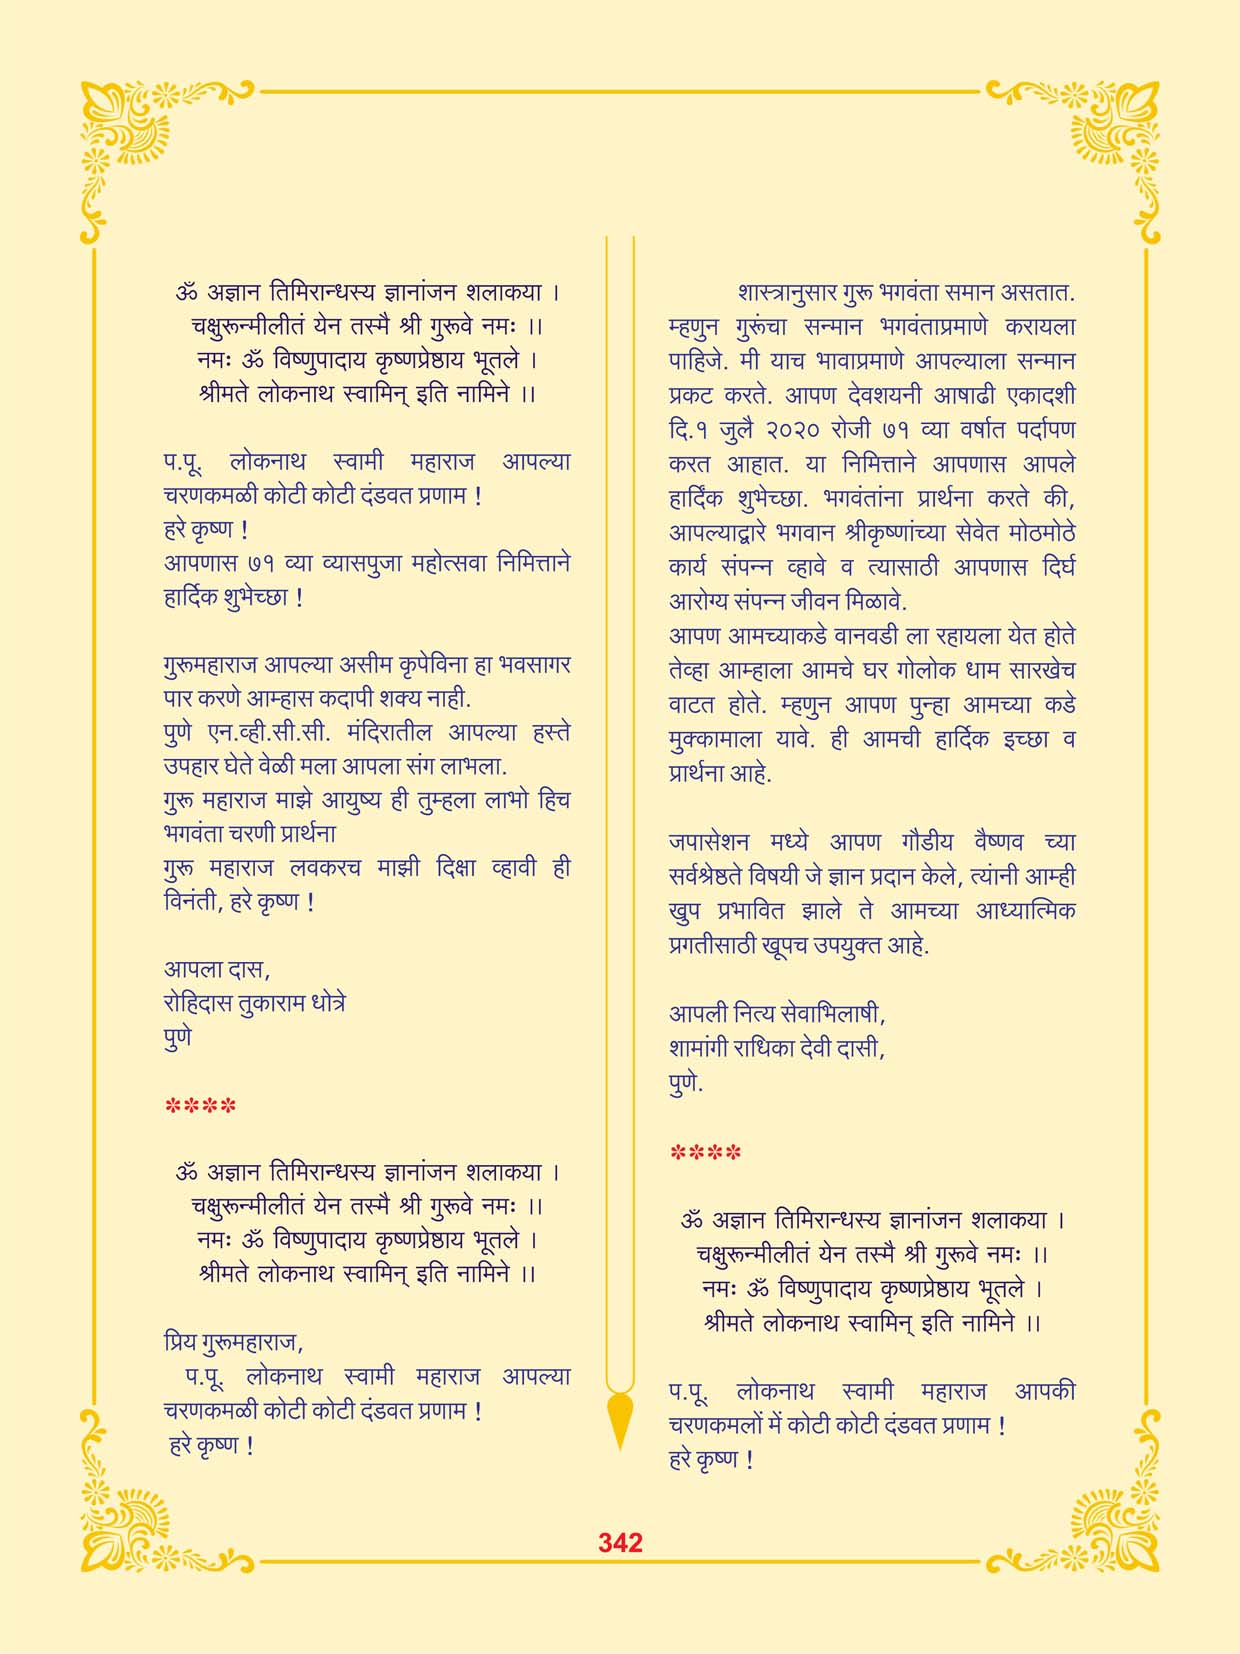 ॐ अज्ञान तिमिरान्धस्य ज्ञानांजन शलाकया ।
चक्षुरून्मीलीतं येन तस्मै श्री गुरूवे नमः ।।
नमः ॐ विष्णुपादाय कृष्णप्रेष्ठाय भूतले ।
श्रीमते लोकनाथ स्वामिन् इति नामिने ।।
प.पू. लोकनाथ स्वामी महाराज आपल्या
चरणकमळी कोटी कोटी दंडवत प्रणाम !
हरे कृष्ण !
आपणास ७१ व्या व्यासपुजा महोत्सवा निमित्ताने
हार्दिक शुभेच्छा !
गुरूमहाराज आपल्या असीम कृपेविना हा भवसागर
पार करणे आम्हास कदापी शक्य नाही.
पुणे एन.व्ही.सी.सी. मंदिरातील आपल्या हस्ते
उपहार घेते वेळी मला आपला संग लाभला.
गुरू महाराज माझे आयुष्य ही तुम्हला लाभो हिच
भगवंता चरणी प्रार्थना
गुरू महाराज लवकरच माझी दिक्षा व्हावी ही
विनंती, हरे कृष्ण !
आपला दास,
रोहिदास तुकाराम धोत्रे
पुणे
****
ॐ अज्ञान तिमिरान्धस्य ज्ञानांजन शलाकया ।
चक्षुरून्मीलीतं येन तस्मै श्री गुरूवे नमः ।।
नमः ॐ विष्णुपादाय कृष्णप्रेष्ठाय भूतले ।
श्रीमते लोकनाथ स्वामिन् इति नामिने ।।
प्रिय गुरूमहाराज,
प.पू. लोकनाथ स्वामी महाराज आपल्या
चरणकमळी कोटी कोटी दंडवत प्रणाम !
हरे कृष्ण !
शास्त्रानुसार गुरू भगवंता समान असतात.
म्हणुन गुरूंचा सन्मान भगवंताप्रमाणे करायला
पाहिजे. मी याच भावाप्रमाणे आपल्याला सन्मान
प्रकट करते. आपण देवशयनी आषाढी एकादशी
दि.१ जुलै २०२० रोजी ७१ व्या वर्षात पर्दापण
करत आहात. या निमित्ताने आपणास आपले
हार्दिक शुभेच्छा. भगवंतांना प्रार्थना करते की,
आपल्याद्वारे भगवान श्रीकृष्णांच्या सेवेत मोठमोठे
कार्य संपन्न व्हावे व त्यासाठी आपणास दिर्घ
आरोग्य संपन्न जीवन मिळावे.
आपण आमच्याकडे वानवडी ला रहायला येत होते
तेव्हा आम्हाला आमचे घर गोलोक धाम सारखेच
वाटत होते. म्हणुन आपण पुन्हा आमच्या कडे
मुक्कामाला यावे. ही आमची हार्दिक इच्छा व
प्रार्थना आहे.
जपासेशन मध्ये आपण गौडीय वैष्णव च्या
सर्वश्रेष्ठते विषयी जे ज्ञान प्रदान केले, त्यांनी आम्ही
खुप प्रभावित झाले ते आमच्या आध्यात्मिक
प्रगतीसाठी खूपच उपयुक्त आहे.
आपली नित्य सेवाभिलाषी,
शामांगी राधिका देवी दासी,
पुणे.
****
ॐ अज्ञान तिमिरान्धस्य ज्ञानांजन शलाकया ।
चक्षुरून्मीलीतं येन तस्मै श्री गुरूवे नमः ।।
नमः ॐ विष्णुपादाय कृष्णप्रेष्ठाय भूतले ।
श्रीमते लोकनाथ स्वामिन् इति नामिने ।।
प.पू. लोकनाथ स्वामी महाराज आपकी
चरणकमलों में कोटी कोटी दंडवत प्रणाम !
हरे कृष्ण !
342